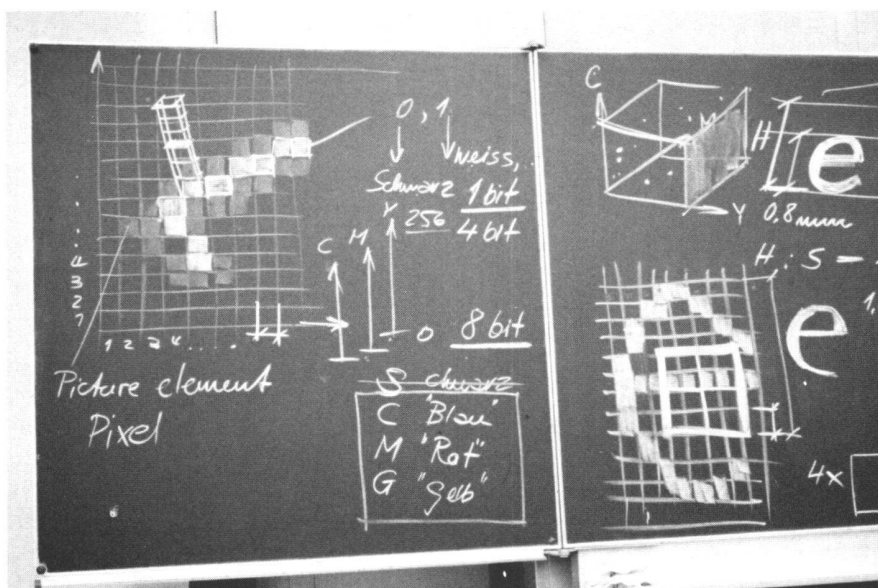 0, 1
weiss,
Schwarz 1 bit
256 4 bit
C M Y
0 8 bit
4
3
2
1
1 2 3 4 . . . .
Picture element
Pixel
S chwarz
C "Blau"
M "Rot"
G "Gelb"
C
M
Y
H
e
0,8 mm
H : S –
e
1,
4x